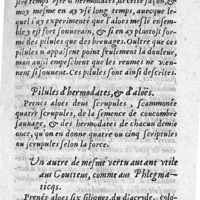 tire temps vser d'hermodates, de ceste façon, &
moy mesme en ay vsé long temps, auecque le-
quel i'ay experimenté que l'aloes meslé ensem-
ble y est fort souuerain, & si en ay plustost for-
mé des pilules que des breuuages. Oultre que ces
pilules n'appaisent point seulement la douleur,
mais aussi empeschent que les reumes ne vien-
nent si souuent. Ces pilules sont ainsi descrites.
Pilules d'hermodates, & d'aloës.
Prenés aloes deux scrupules, scammonée
quatre scrupules, de la semence de coucombre
sauuage, & des hermodates de chacun demie
once, qu'on en donne quatre ou cinq scriptules
ou scrupules selon la force.
Vn autre de mesme vertu autant vtile
aux Goutteus, comme aux Phlegma-
ticqs.
Prenés aloes six siliques, du diacryde, colo-